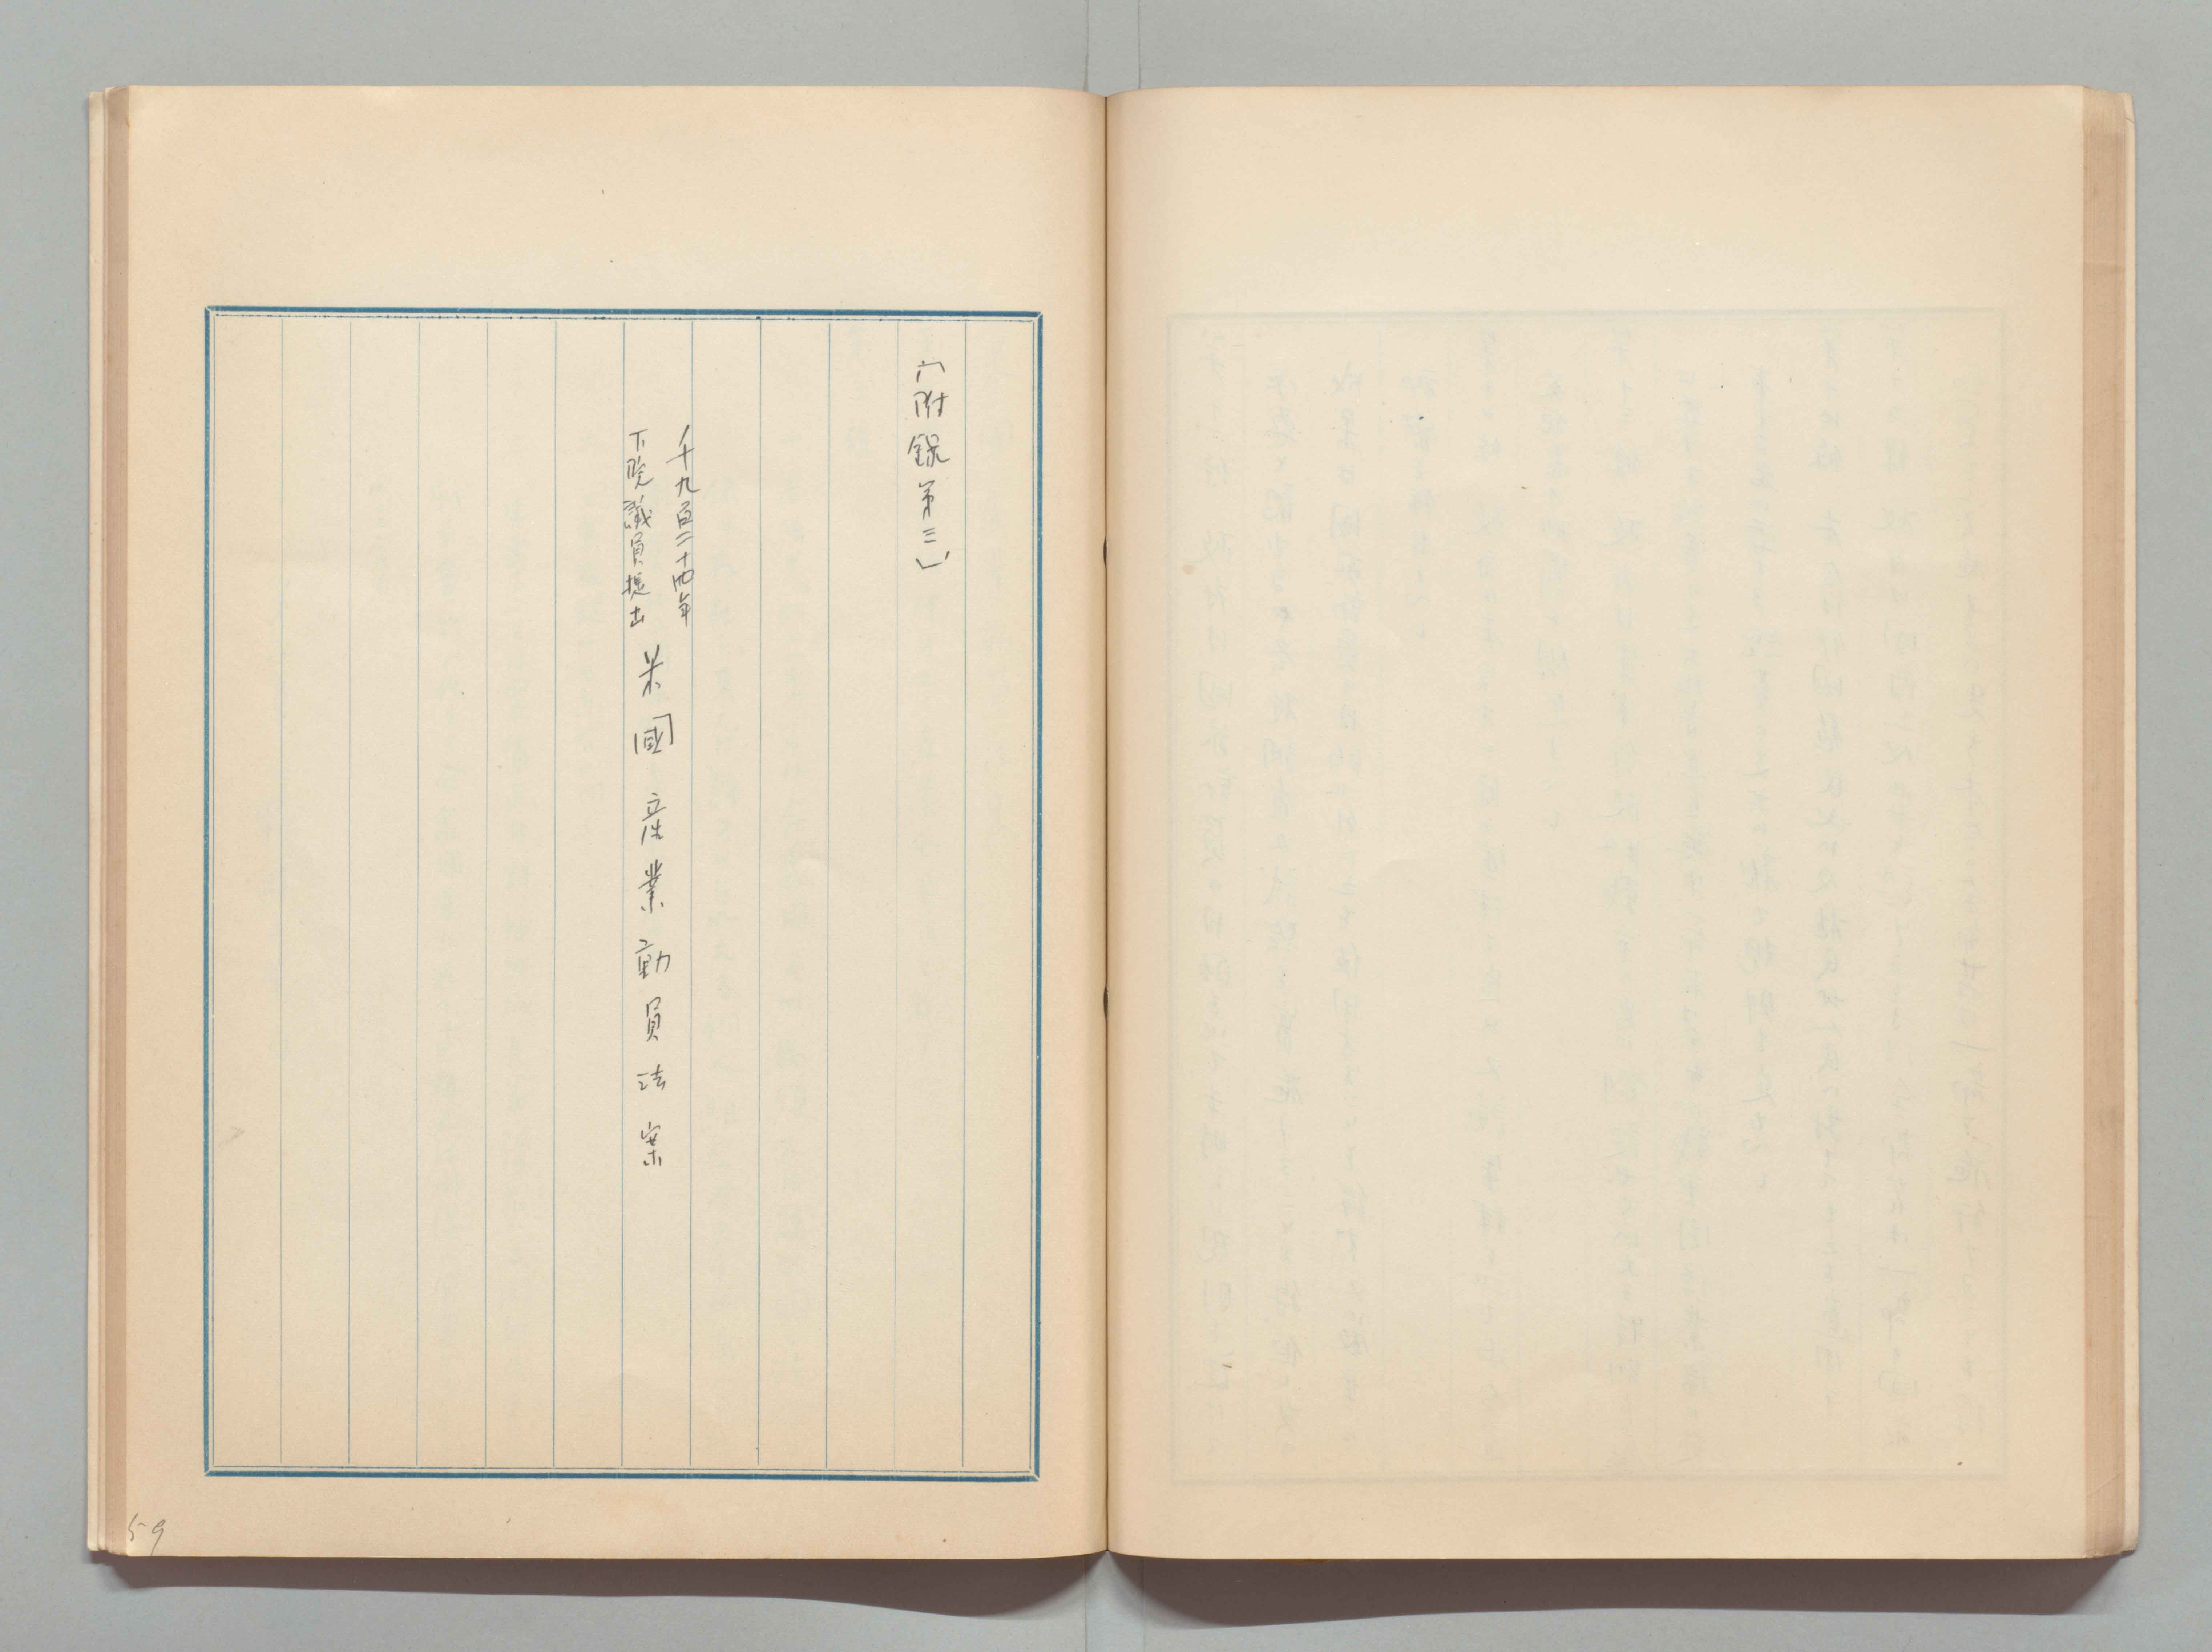 (附録第三)
千九百二十四年
下院議員提出
米國産業動員法案
59